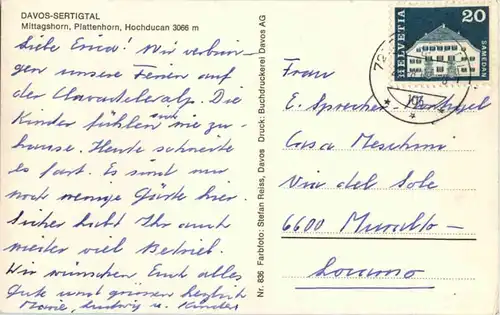 DAVOS-SERTIGTAL
Mittagshorn, Plattenhorn, Hochducan 3066 m
Liebe Erica! Wir verbrin-
gen unsere Ferien auf
der Clavadeleralp. Die
Kinder fühlen sich wie zu-
hause. Heute schneite
es fast. Es sind nur
noch wenige Gäste hier.
Sicher habt Ihr auch
weiter viel Betrieb.
Wir wünschen Euch alles
Gute und grüssen herzlich
Marie, Ludwig u. Kinder
Nr. 836 Farbfoto: Stefan Reiss, Davos Druck: Buchdruckerei Davos AG
HELVETIA
20
SAMEDAN
Frau
E. Sprecher-
Casa Meschini
Via del Sole
6600 Muralto-
Locarno